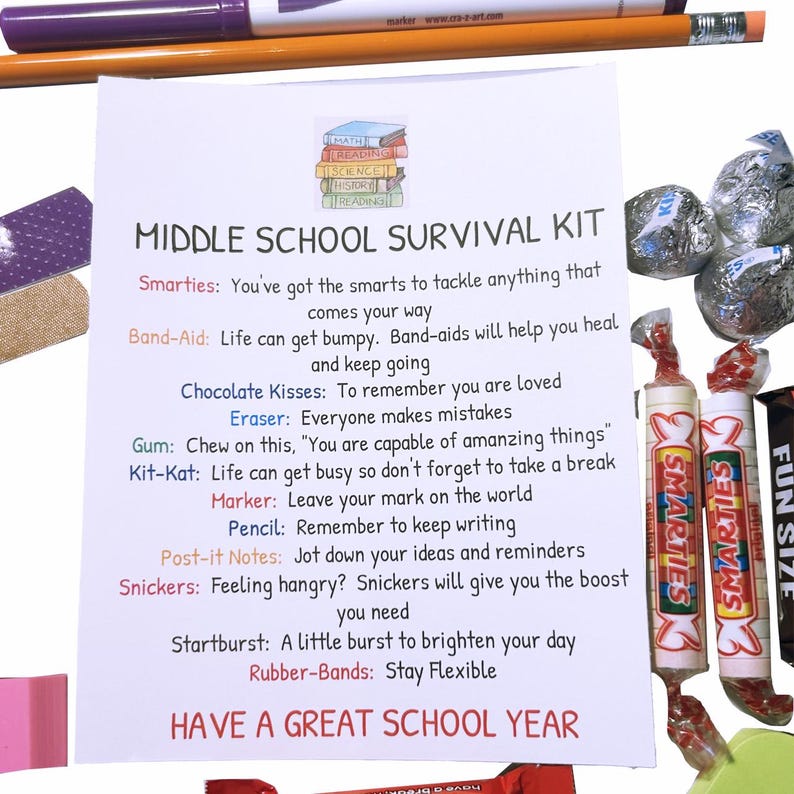 marker www.cra-z-art.com
MATH
READING
SCIENCE
HISTORY
READING
MIDDLE SCHOOL SURVIVAL KIT
Smarties: You've got the smarts to tackle anything that
comes your way
Band-Aid: Life can get bumpy. Band-aids will help you heal
and keep going
Chocolate Kisses: To remember you are loved
Eraser: Everyone makes mistakes
Gum: Chew on this, "You are capable of amanzing things"
Kit-Kat: Life can get busy so don't forget to take a break
Marker: Leave your mark on the world
Pencil: Remember to keep writing
Post-it Notes: Jot down your ideas and reminders
Snickers: Feeling hangry? Snickers will give you the boost
you need
Startburst: A little burst to brighten your day
Rubber-Bands: Stay Flexible
HAVE A GREAT SCHOOL YEAR
SMARTIES
SMARTIES
FUN SIZE
have a break